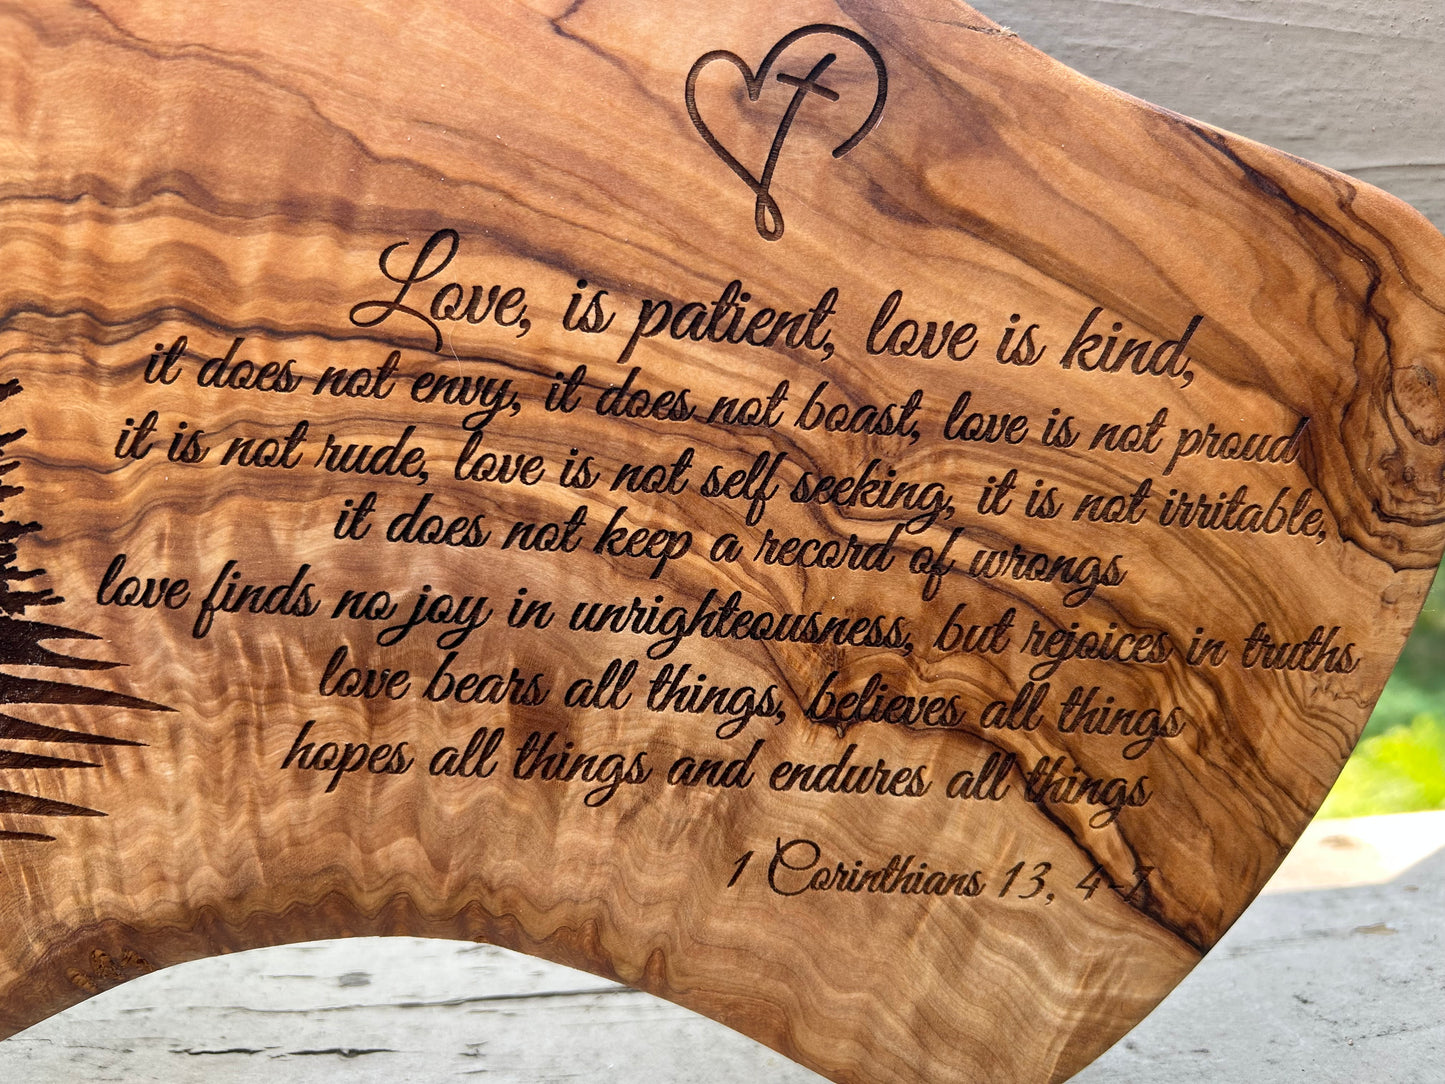 Love, is patient, love is kind,
it does not envy, it does not boast, love is not proud
it is not rude, love is not self seeking, it is not irritable,
it does not keep a record of wrongs
love finds no joy in unrighteousness, but rejoices in truths
love bears all things, believes all things
hopes all things and endures all things
1 Corinthians 13, 4-7